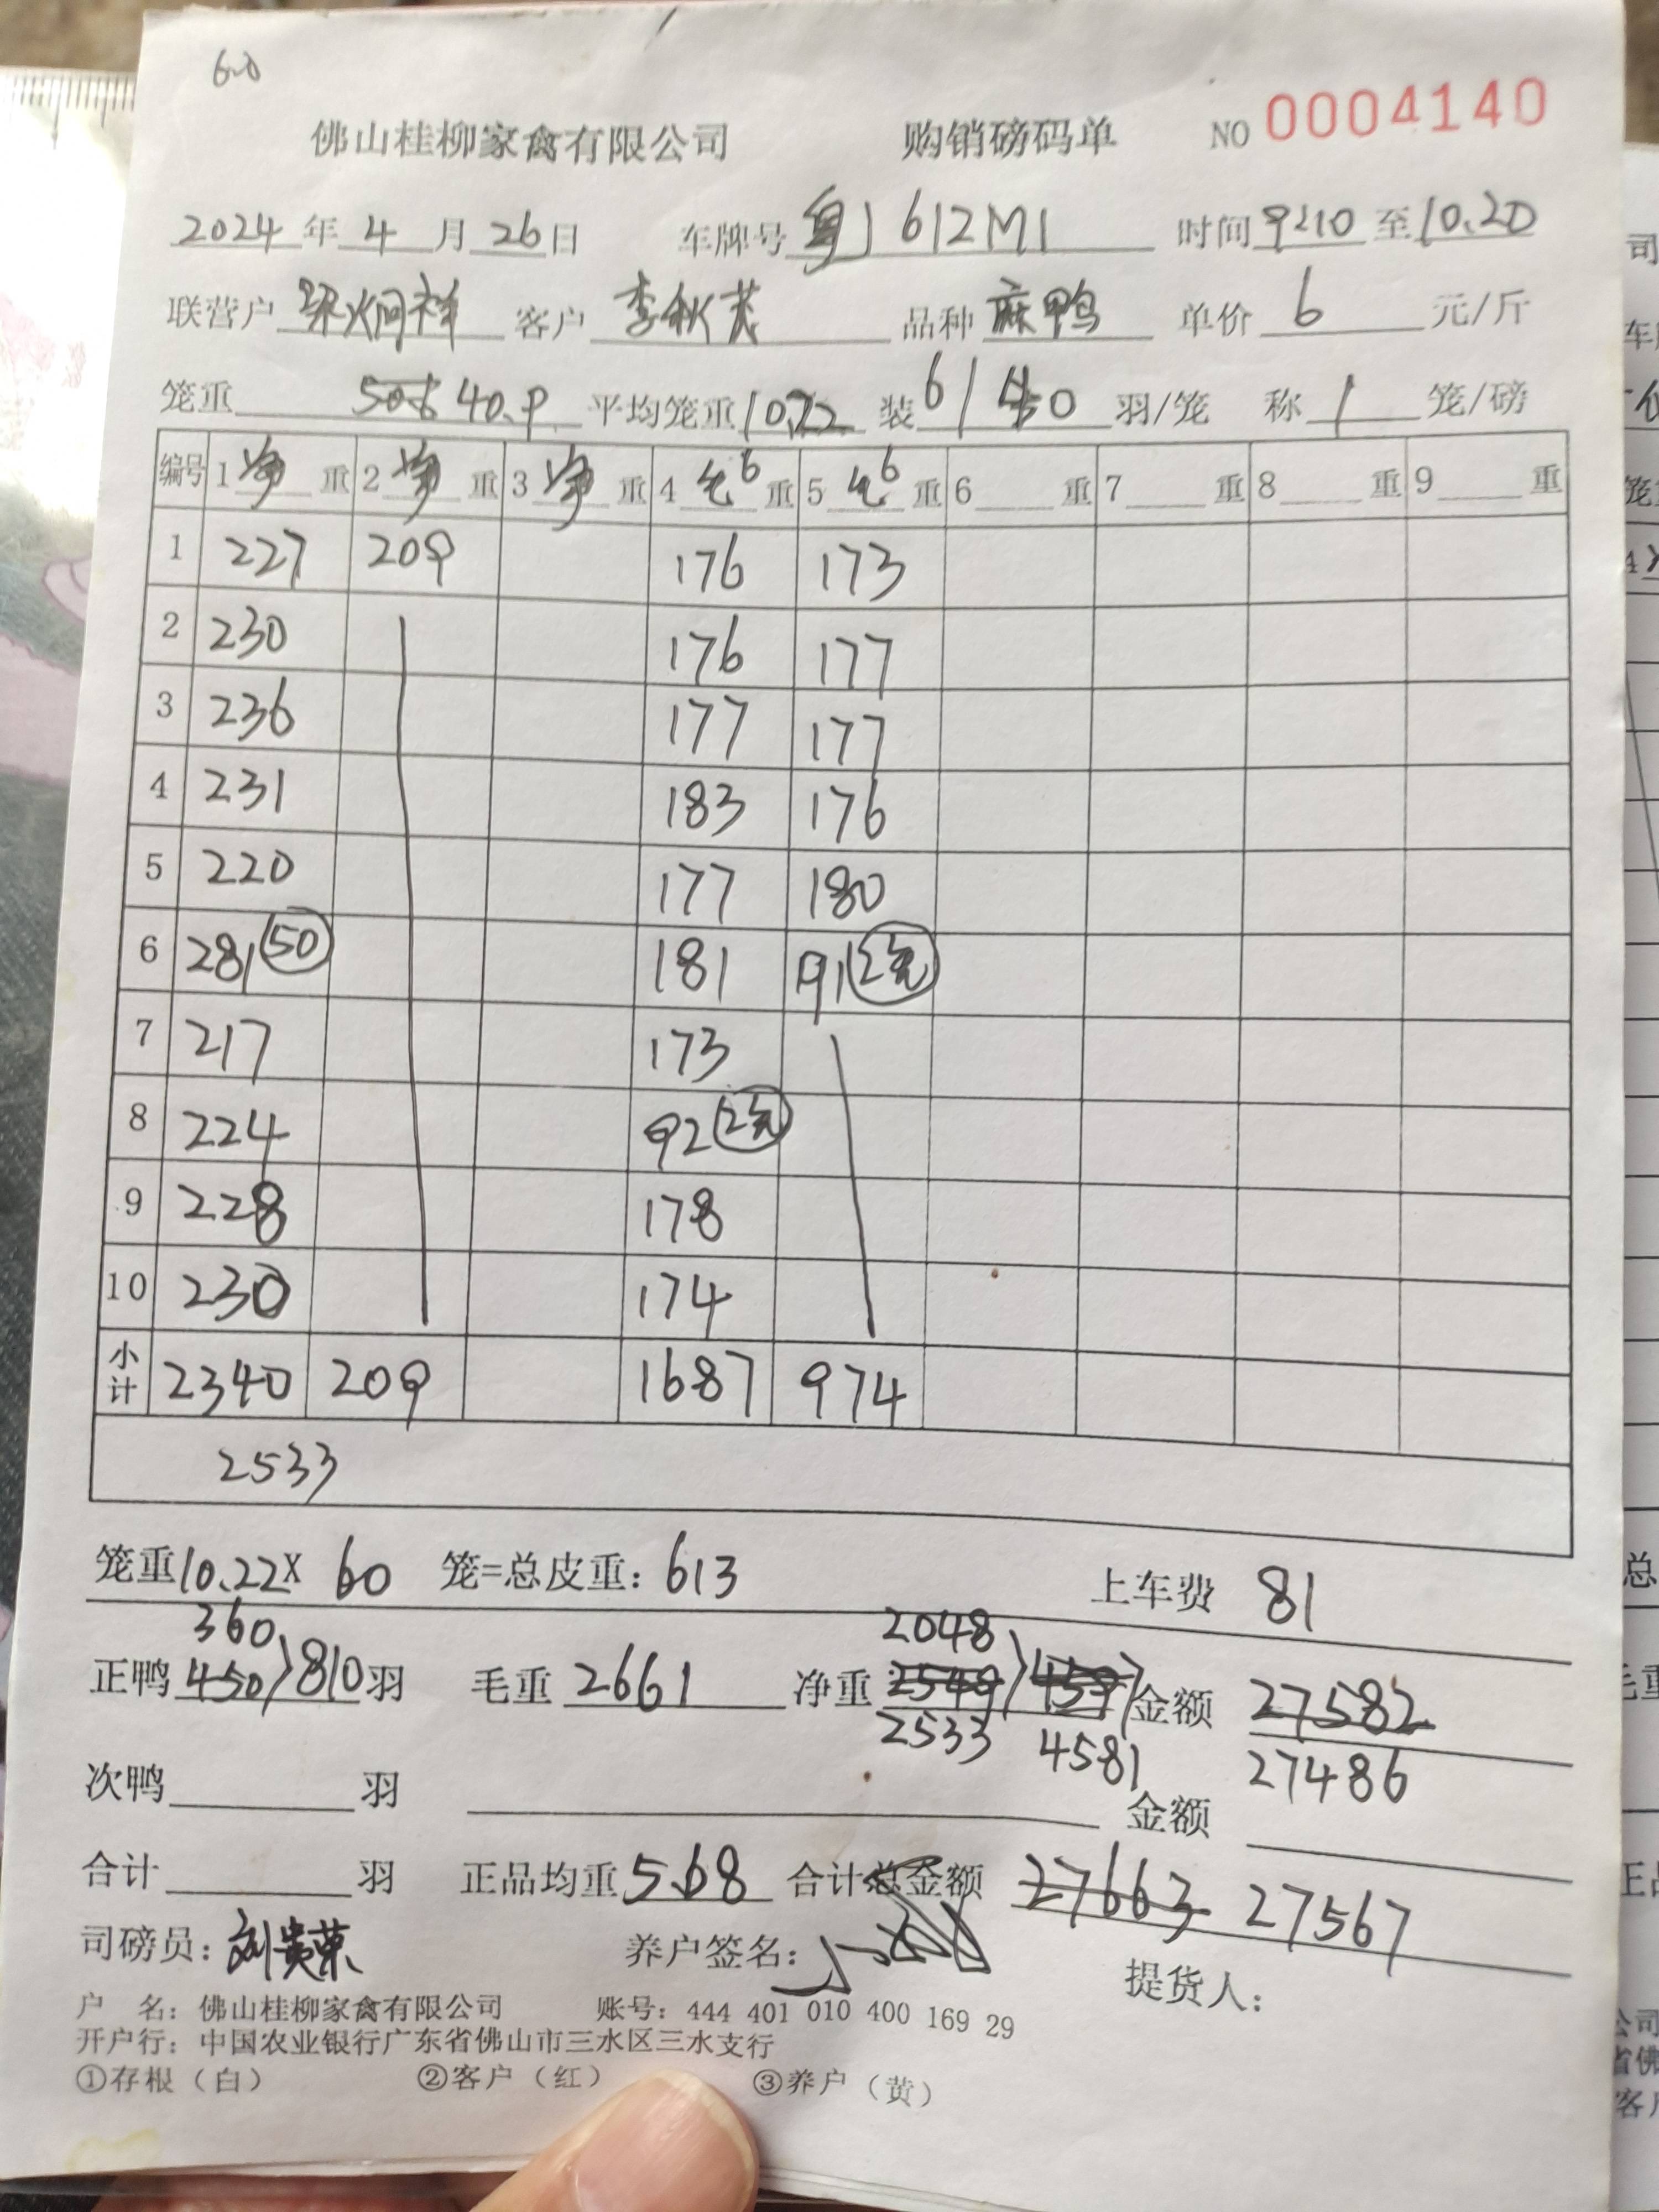 6.0
佛山桂柳家禽有限公司 购销磅码单 NO 0004140
2024年4月26日 车牌号 粤J 612M1 时间 9:10 至 10.20
联营户 梁炯祥 客户 李秋茂 品种 麻鸭 单价 6 元/斤
笼重 40.9 平均笼重 10.22 装 6/ 450 羽/笼 称 1 笼/磅
编号 1 净 重 2 净 重 3 净 重 4 毛6 重 5 毛6 重 6 重 7 重 8 重 9 重
1 227 209 176 173
2 230 176 177
3 236 177 177
4 231 183 176
5 220 177 180
6 281 50 181 91
7 217 173
8 224 92
9 228 178
10 230 174
小计 2340 209 1687 974
2533
笼重 10.22 X 60 笼=总皮重: 613 上车费 81
360 2048
正鸭 450 810 羽 毛重 2661 净重 2549 4597 金额 27582
2533 4581 27486
次鸭 羽 金额
合计 羽 正品均重 5.68 合计总金额 27663 27567
司磅员: 刘贵荣 养户签名: 提货人:
户 名: 佛山桂柳家禽有限公司 账号: 444 401 010 400 169 29
开户行: 中国农业银行广东省佛山市三水区三水支行
①存根(白) ②客户(红) ③养户(黄)